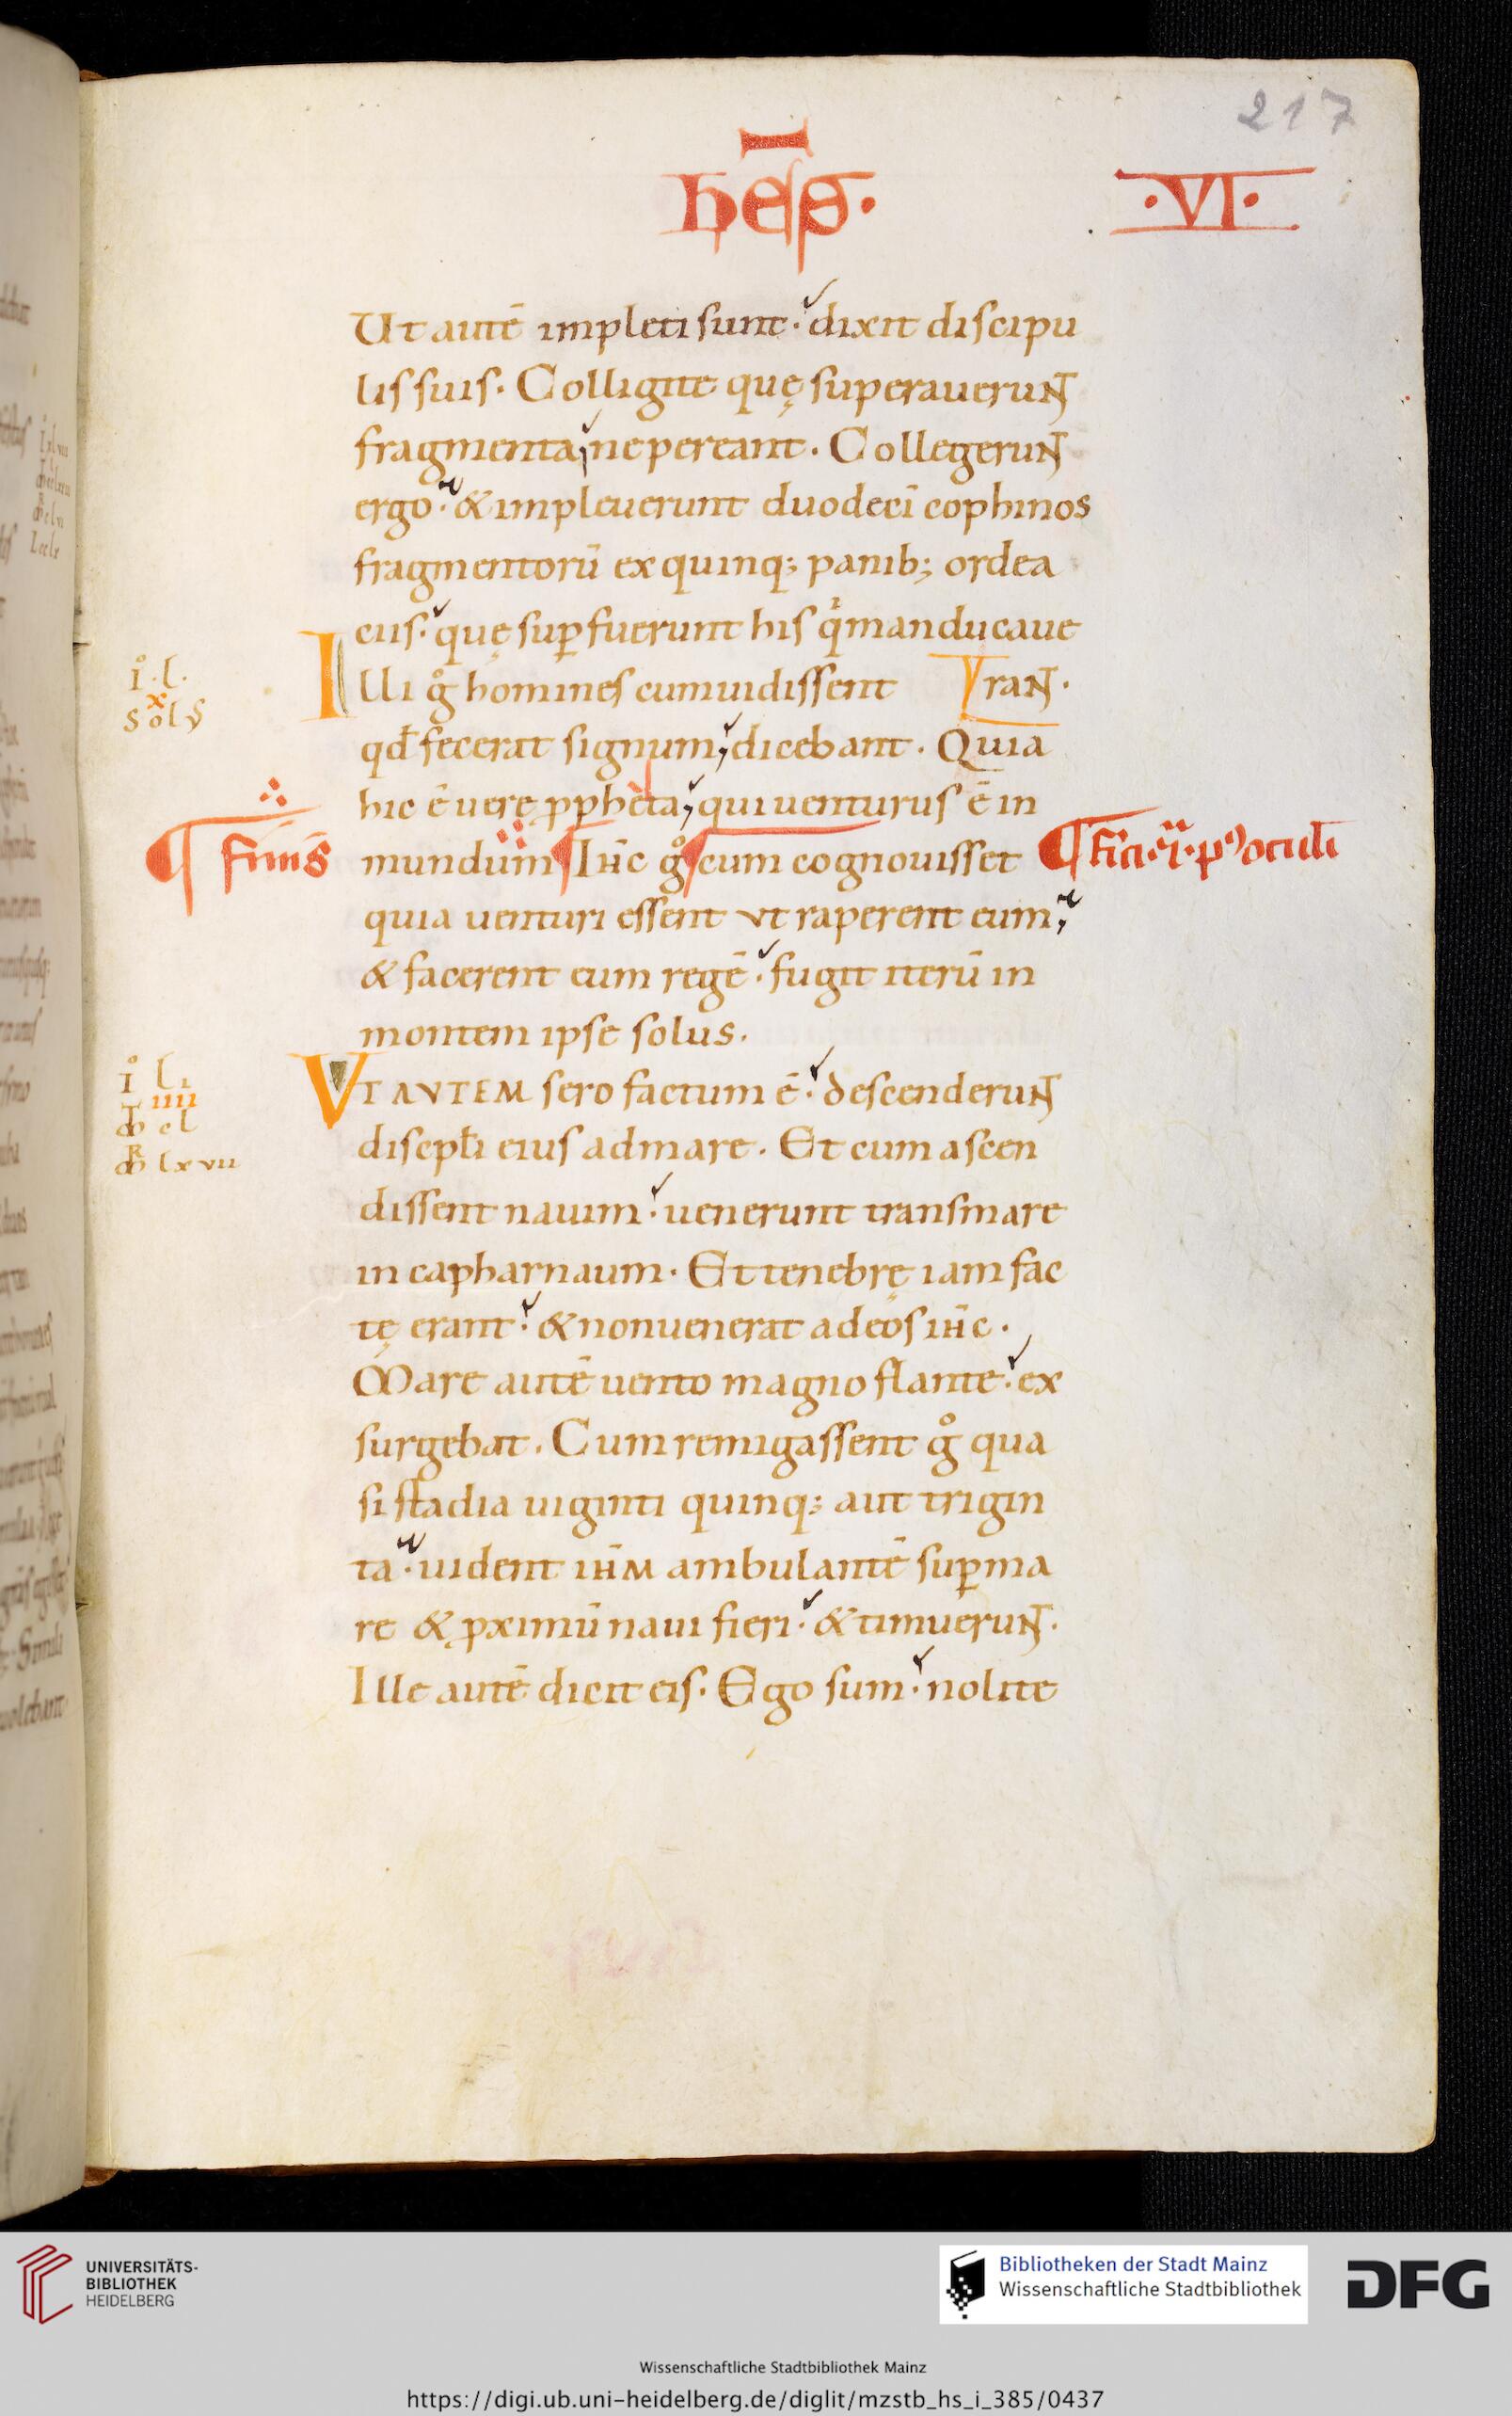 217
·VI·
Ut autē impleti sunt· dixit discipu
lis suis· Colligite quę superauerunt
fragmenta, ne pereant. Collegerunt
ergo· & impleuerunt duodecī cophinos
fragmentorū ex quinq; panib; ordea
ciis· quę sup̄fuerunt his q̇ manducaue
Illi g̊ homines cum uidissent rant·
qđ fecerat signum, dicebant. Quia
hic ē uere ꝓpheta, qui uenturus ē in
finis mundum Ih̄c g̊ cum cognouisset
quia uenturi essent ut raperent eum,
& facerent eum regē· fugit iterū in
montem ipse solus.
VT AVTEM sero factum ē· descenderunt
discipl̄i eius ad mare. Et cum ascen
dissent nauim· uenerunt trans mare
in capharnaum. Et tenebrę iam fac
tę erant· & non uenerat ad eos ih̄c.
Mare autē uento magno flante· ex
surgebat. Cum remigassent g̊ qua
si stadia uiginti quinq; aut trigin
ta· uident ih̄m ambulantē sup̄ ma
re & ꝓximū naui fieri· & timuerunt.
Ille autē dicit eis. Ego sum· nolite
i̊ · l ·
x
i̊ li
iiii
lxvii
UNIVERSITÄTS-
BIBLIOTHEK
HEIDELBERG
Bibliotheken der Stadt Mainz
Wissenschaftliche Stadtbibliothek
DFG
Wissenschaftliche Stadtbibliothek Mainz
https://digi.ub.uni-heidelberg.de/diglit/mzstb_hs_i_385/0437